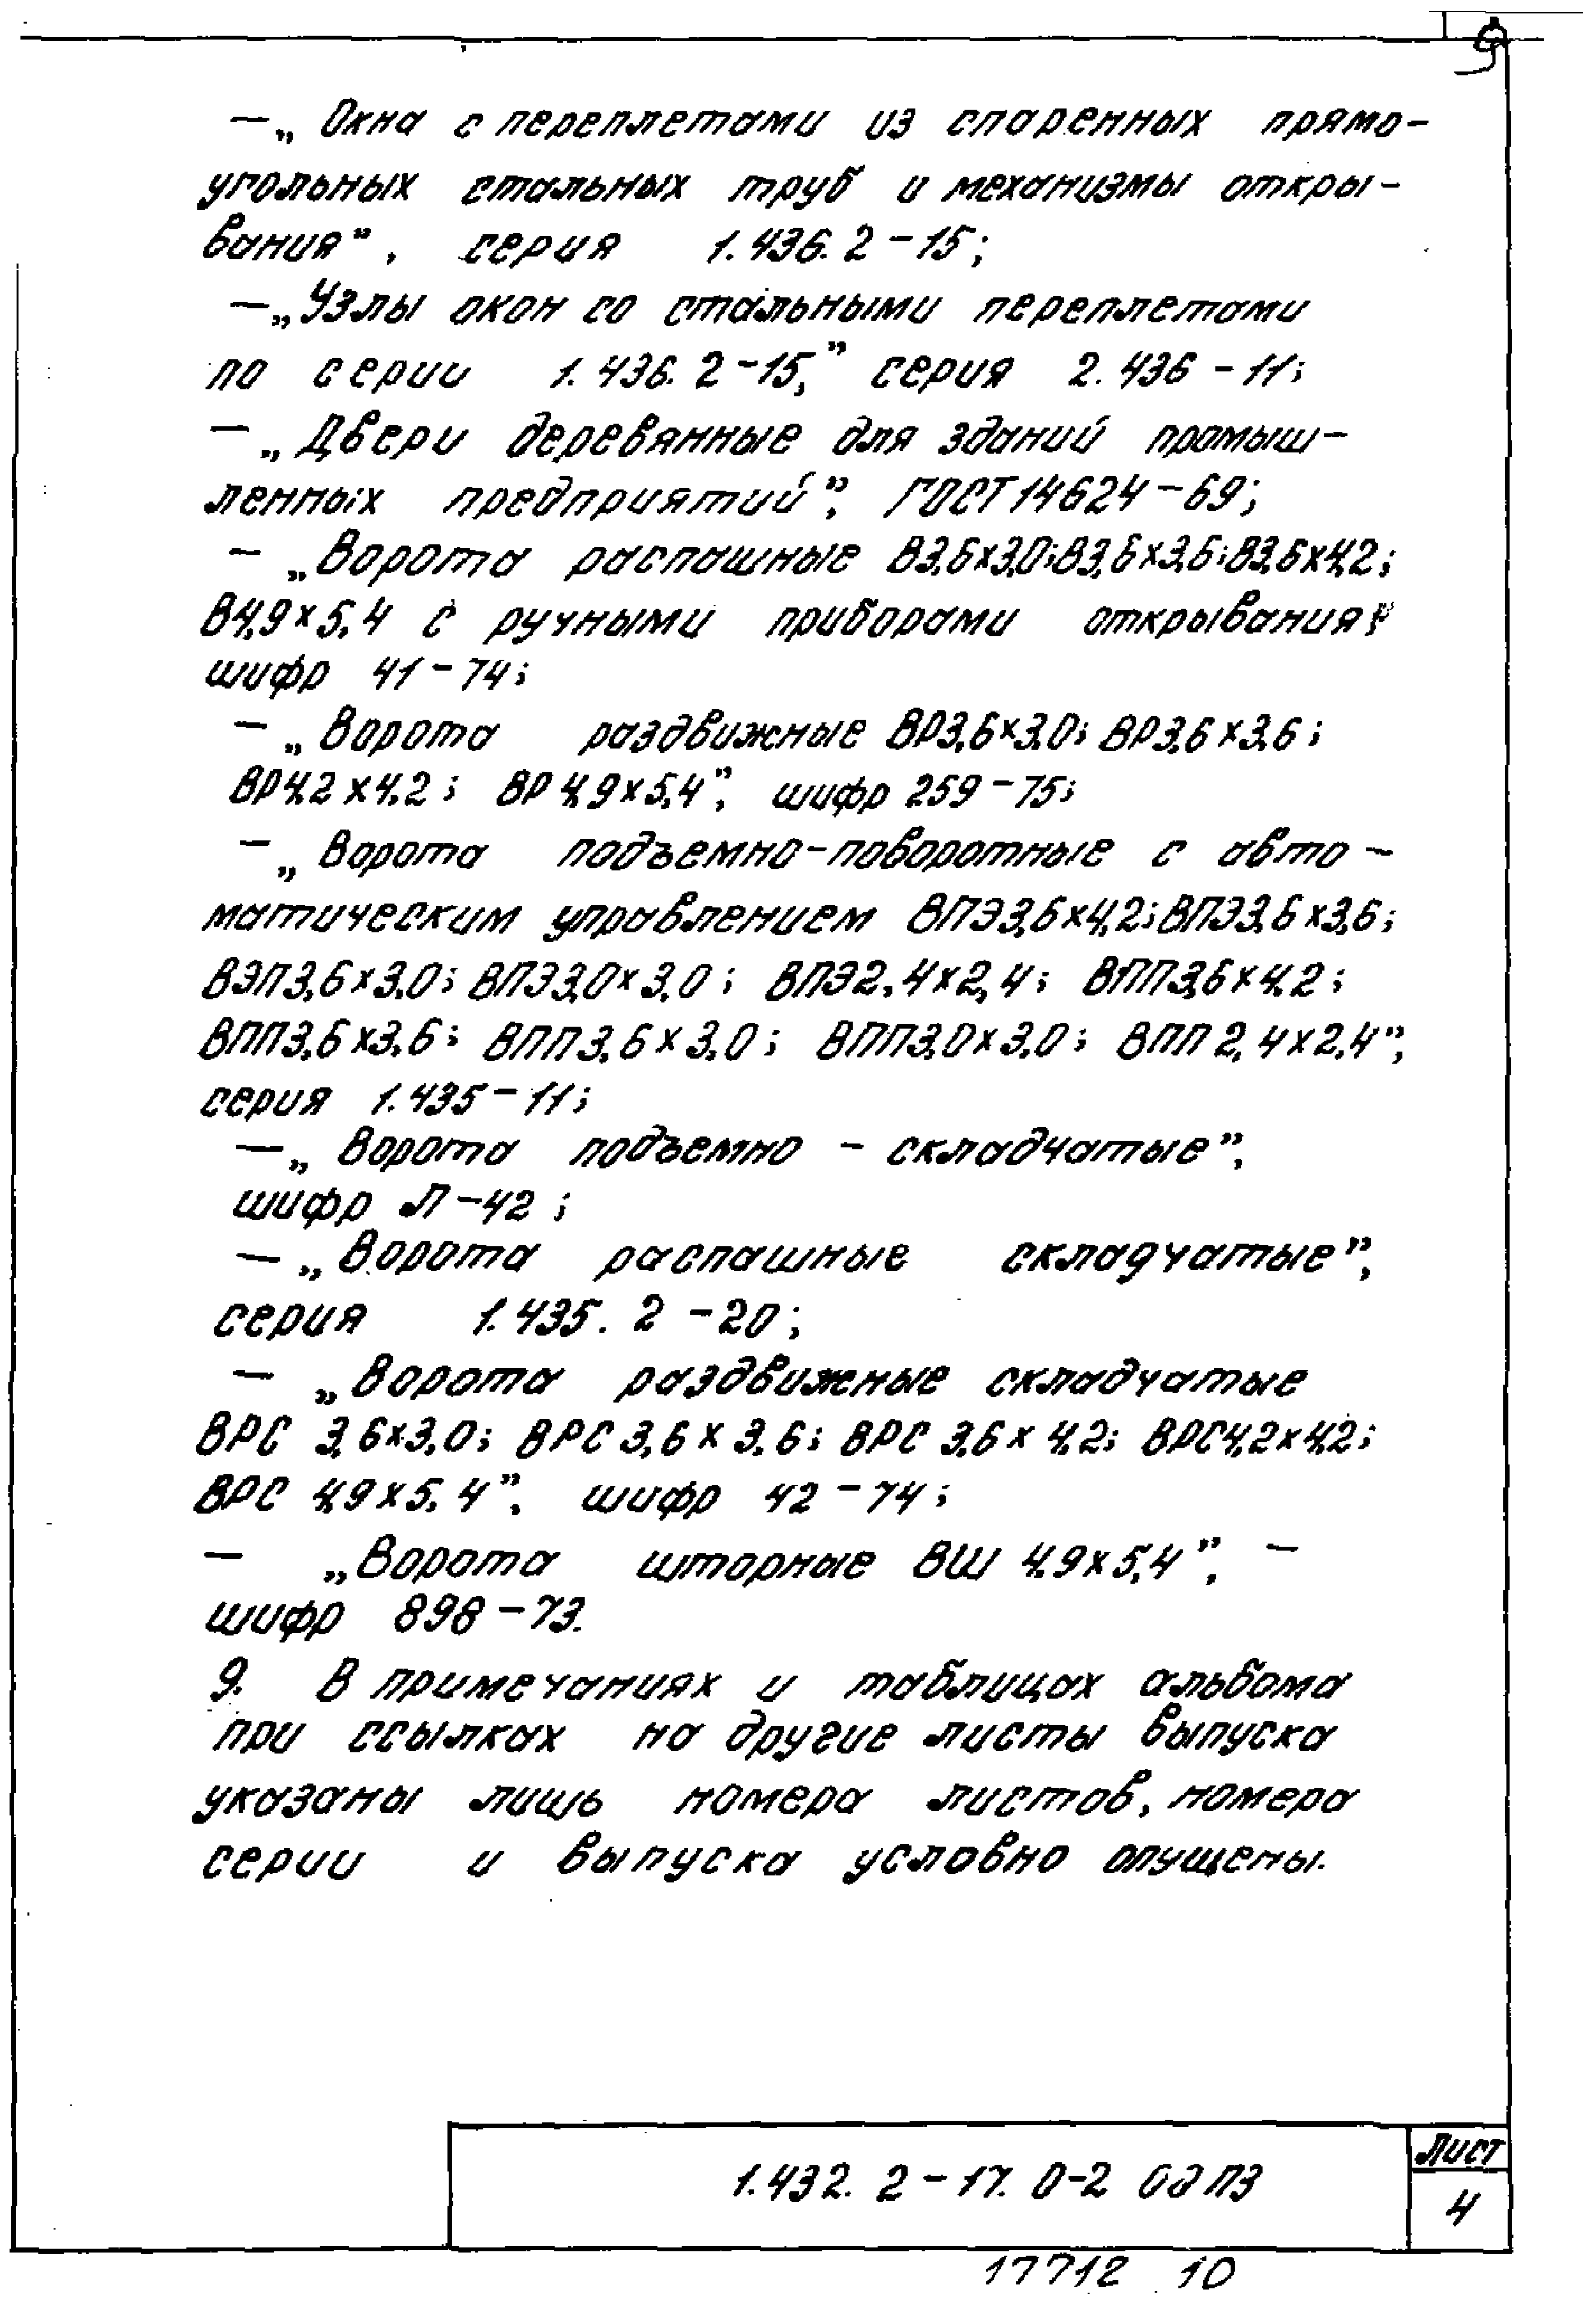 9
— „Окна с переплетами из спаренных прямо-
угольных стальных труб и механизмы откры-
вания", серия 1.436.2-15;
— „Узлы окон со стальными переплетами
по серии 1.436.2-15," серия 2.436-11;
— „Двери деревянные для зданий промыш-
ленных предприятий", ГОСТ 14624-69;
— „Ворота распашные В3,6х3,0; В3,6х3,6; В3,6х4,2;
В4,9х5,4 с ручными приборами открывания",
шифр 41-74;
— „Ворота раздвижные ВР3,6х3,0; ВР3,6х3,6;
ВР4,2х4,2; ВР4,9х5,4", шифр 259-75;
— „Ворота подъемно-поворотные с авто-
матическим управлением ВПЭ3,6х4,2; ВПЭ3,6х3,6;
ВЭП3,6х3,0; ВПЭ3,0х3,0; ВПЭ2,4х2,4; ВПП3,6х4,2;
ВПП3,6х3,6; ВПП3,6х3,0; ВПП3,0х3,0; ВПП2,4х2,4",
серия 1.435-11;
— „Ворота подъемно-складчатые",
шифр Л-42;
— „Ворота распашные складчатые",
серия 1.435.2-20;
— „Ворота раздвижные складчатые
ВРС 3,6х3,0; ВРС 3,6х3,6; ВРС 3,6х4,2; ВРС4,2х4,2;
ВРС 4,9х5,4", шифр 42-74;
— „Ворота шторные ВШ 4,9х5,4", —
шифр 898-73.
9. В примечаниях и таблицах альбома
при ссылках на другие листы выпуска
указаны лишь номера листов, номера
серии и выпуска условно опущены.
1.432.2-17.0-2 00 ПЗ
Лист
4
17712 10